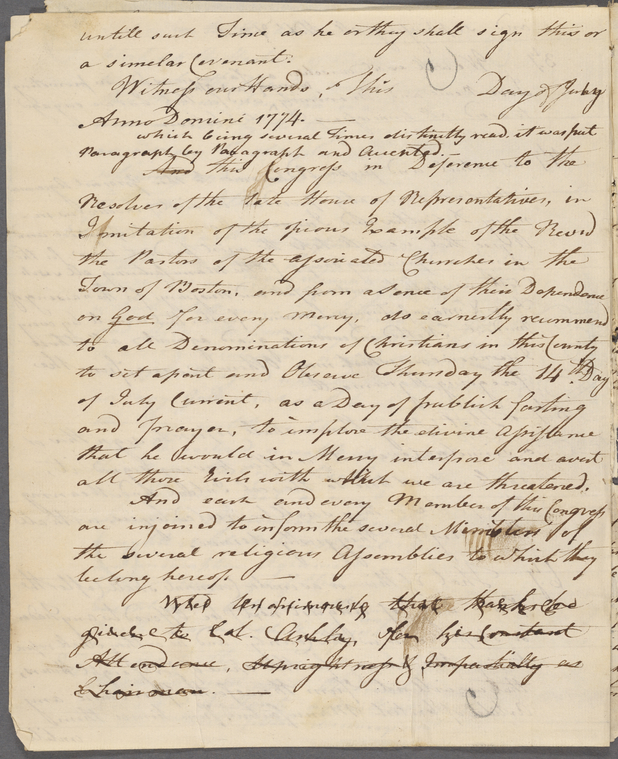 untill such Time as he or they shall sign this or
a simelar Covenant.
Witness our Hands, this Day of July
Anno Domini 1774.
which being several Times distinctly read, it was put
Paragraph by Paragraph and Accepted.
And this Congress in Deference to the
Resolves of the late House of Representatives, in
Imitation of the pious Example of the Revd
the Pastors of the associated Churches in the
Town of Boston, and from a Sence of their Dependence
on God for every Mercy, do earnestly recommend
to all Denominations of Christians in this County
to set apart and Observe Thursday the 14th Day
of July Current, as a Day of publick fasting
and Prayer, to implore the divine Assistance
that he would in Mercy interpose and avert
all those Evils with which we are threatened.
And each and every Member of this Congress
are injoined to inform the several Ministers of
the several religious Assemblies to which they
belong hereof.
Voted unanimously that thanks be
given to Col. Ashley, for his Constant
Attendance, Uprightness & Impartiality as
Chairman.